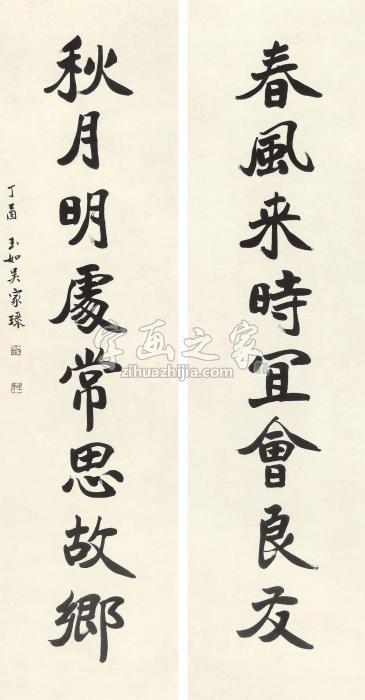 春風来時宜會良友
秋月明處常思故鄉
丁酉 玉如吴家琭
字画之家
zihuazhijia.com